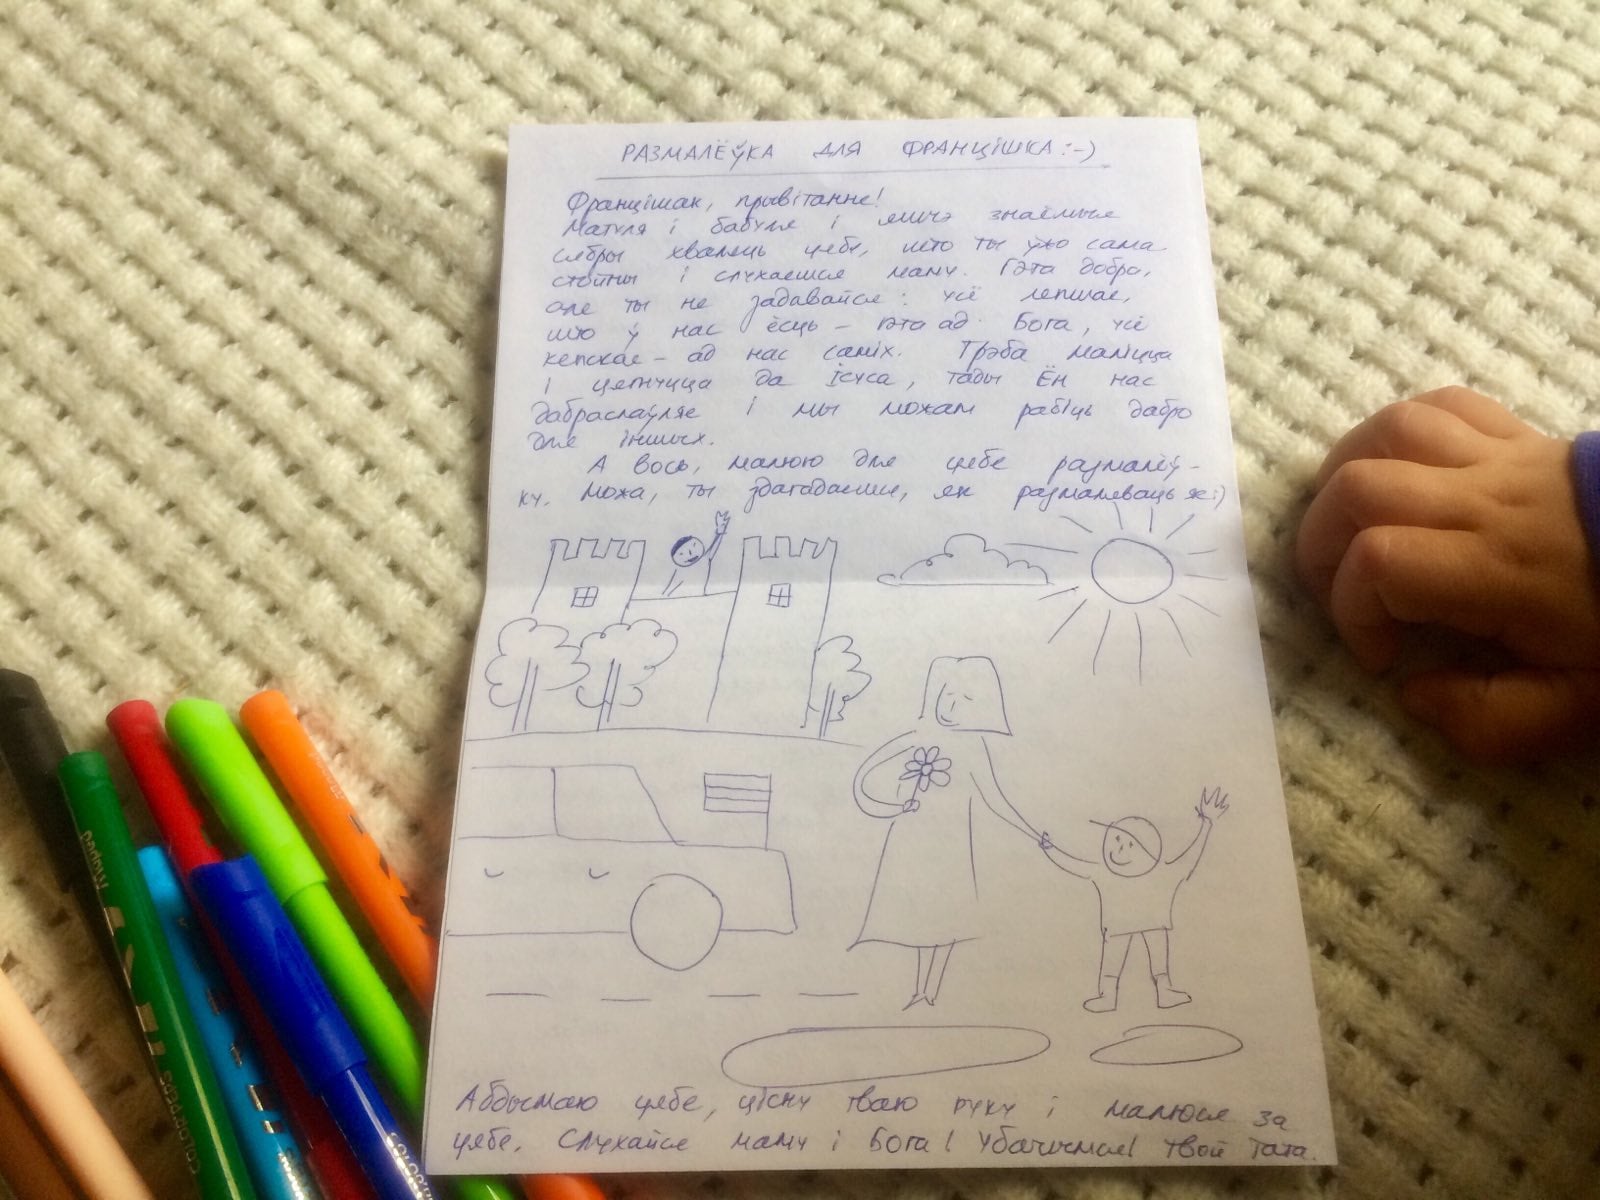 РАЗМАЛЁЎКА ДЛЯ ФРАНЦІШКА :-)
Францішак, прывітанне!
Матуля і бабуля і яшчэ знаёмыя
сябры хваляць цябе, што ты ўжо сама
стоіш і слухаешся маму. Гэта добра,
але ты не задавайся: усё лепшае,
што ў нас ёсць – гэта ад Бога, усё
кепскае – ад нас саміх. Трэба маліцца
і цягнуцца да Ісуса, тады Ён нас
дабраслаўляе і мы можам рабіць дабро
для іншых.
А вось, малюю для цябе размалёў-
ку. Можа, ты здагадаешся, як размаляваць яе :)
Абдымаю цябе, цісну тваю руку і малюся за
цябе. Слухайся маму і Бога! Убачымся! Твой Тата.